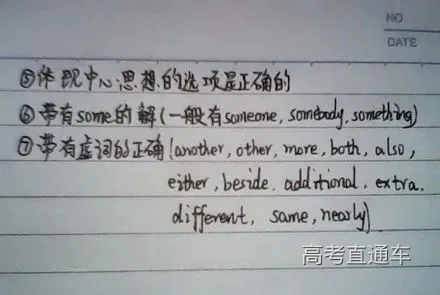 NO
DATE
⑤体现中心思想的选项是正确的
⑥带有some的解(一般有someone, somebody, something)
⑦带有虚词的正确(another, other, more, both, also,
either, beside, additional, extra,
different, same, nearly)
高考直通车